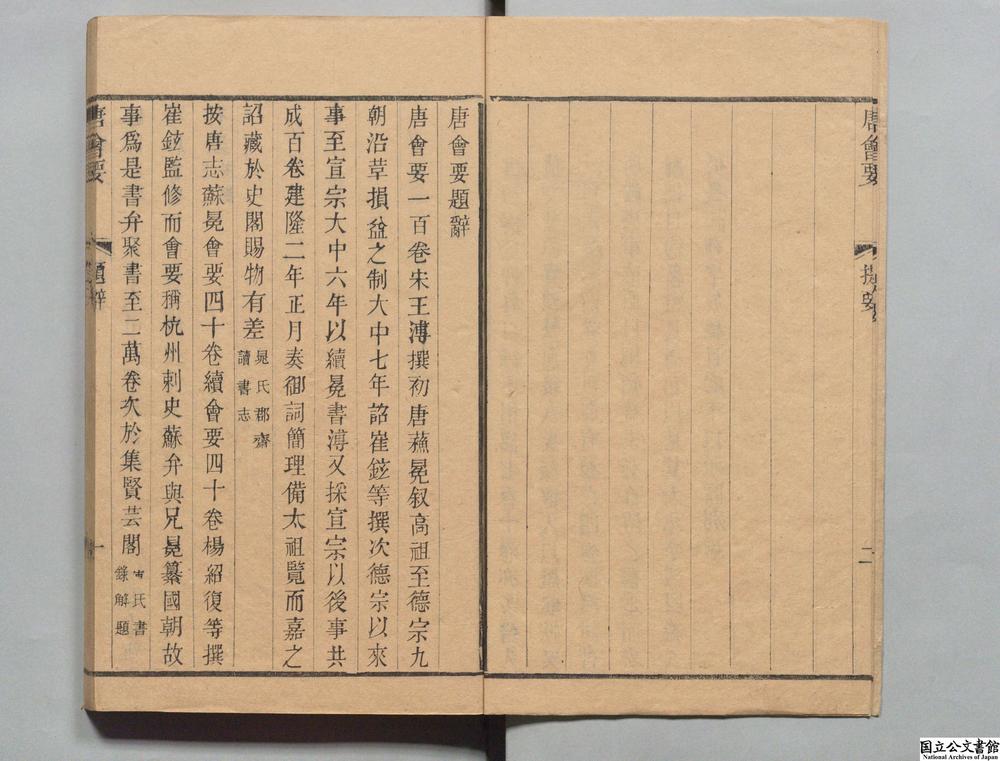 唐會要
提要
二
唐會要題辭
唐會要一百卷宋王溥撰初唐蘓冕叙高祖至德宗九
朝沿革損益之制大中七年詔崔鉉等撰次德宗以來
事至宣宗大中六年以續冕書溥又採宣宗以後事共
成百卷建隆二年正月奏御詞簡理備太祖覽而嘉之
詔藏於史閣賜物有差晁氏郡齋
讀書志
按唐志蘇冕會要四十卷續會要四十卷楊紹復等撰
崔鉉監修而會要稱杭州刺史蘇弁與兄冕纂國朝故
事爲是書弁聚書至二萬卷次於集賢芸閣 氏書
錄解題
唐會要
題辭
一
国立公文書館
National Archives of Japan